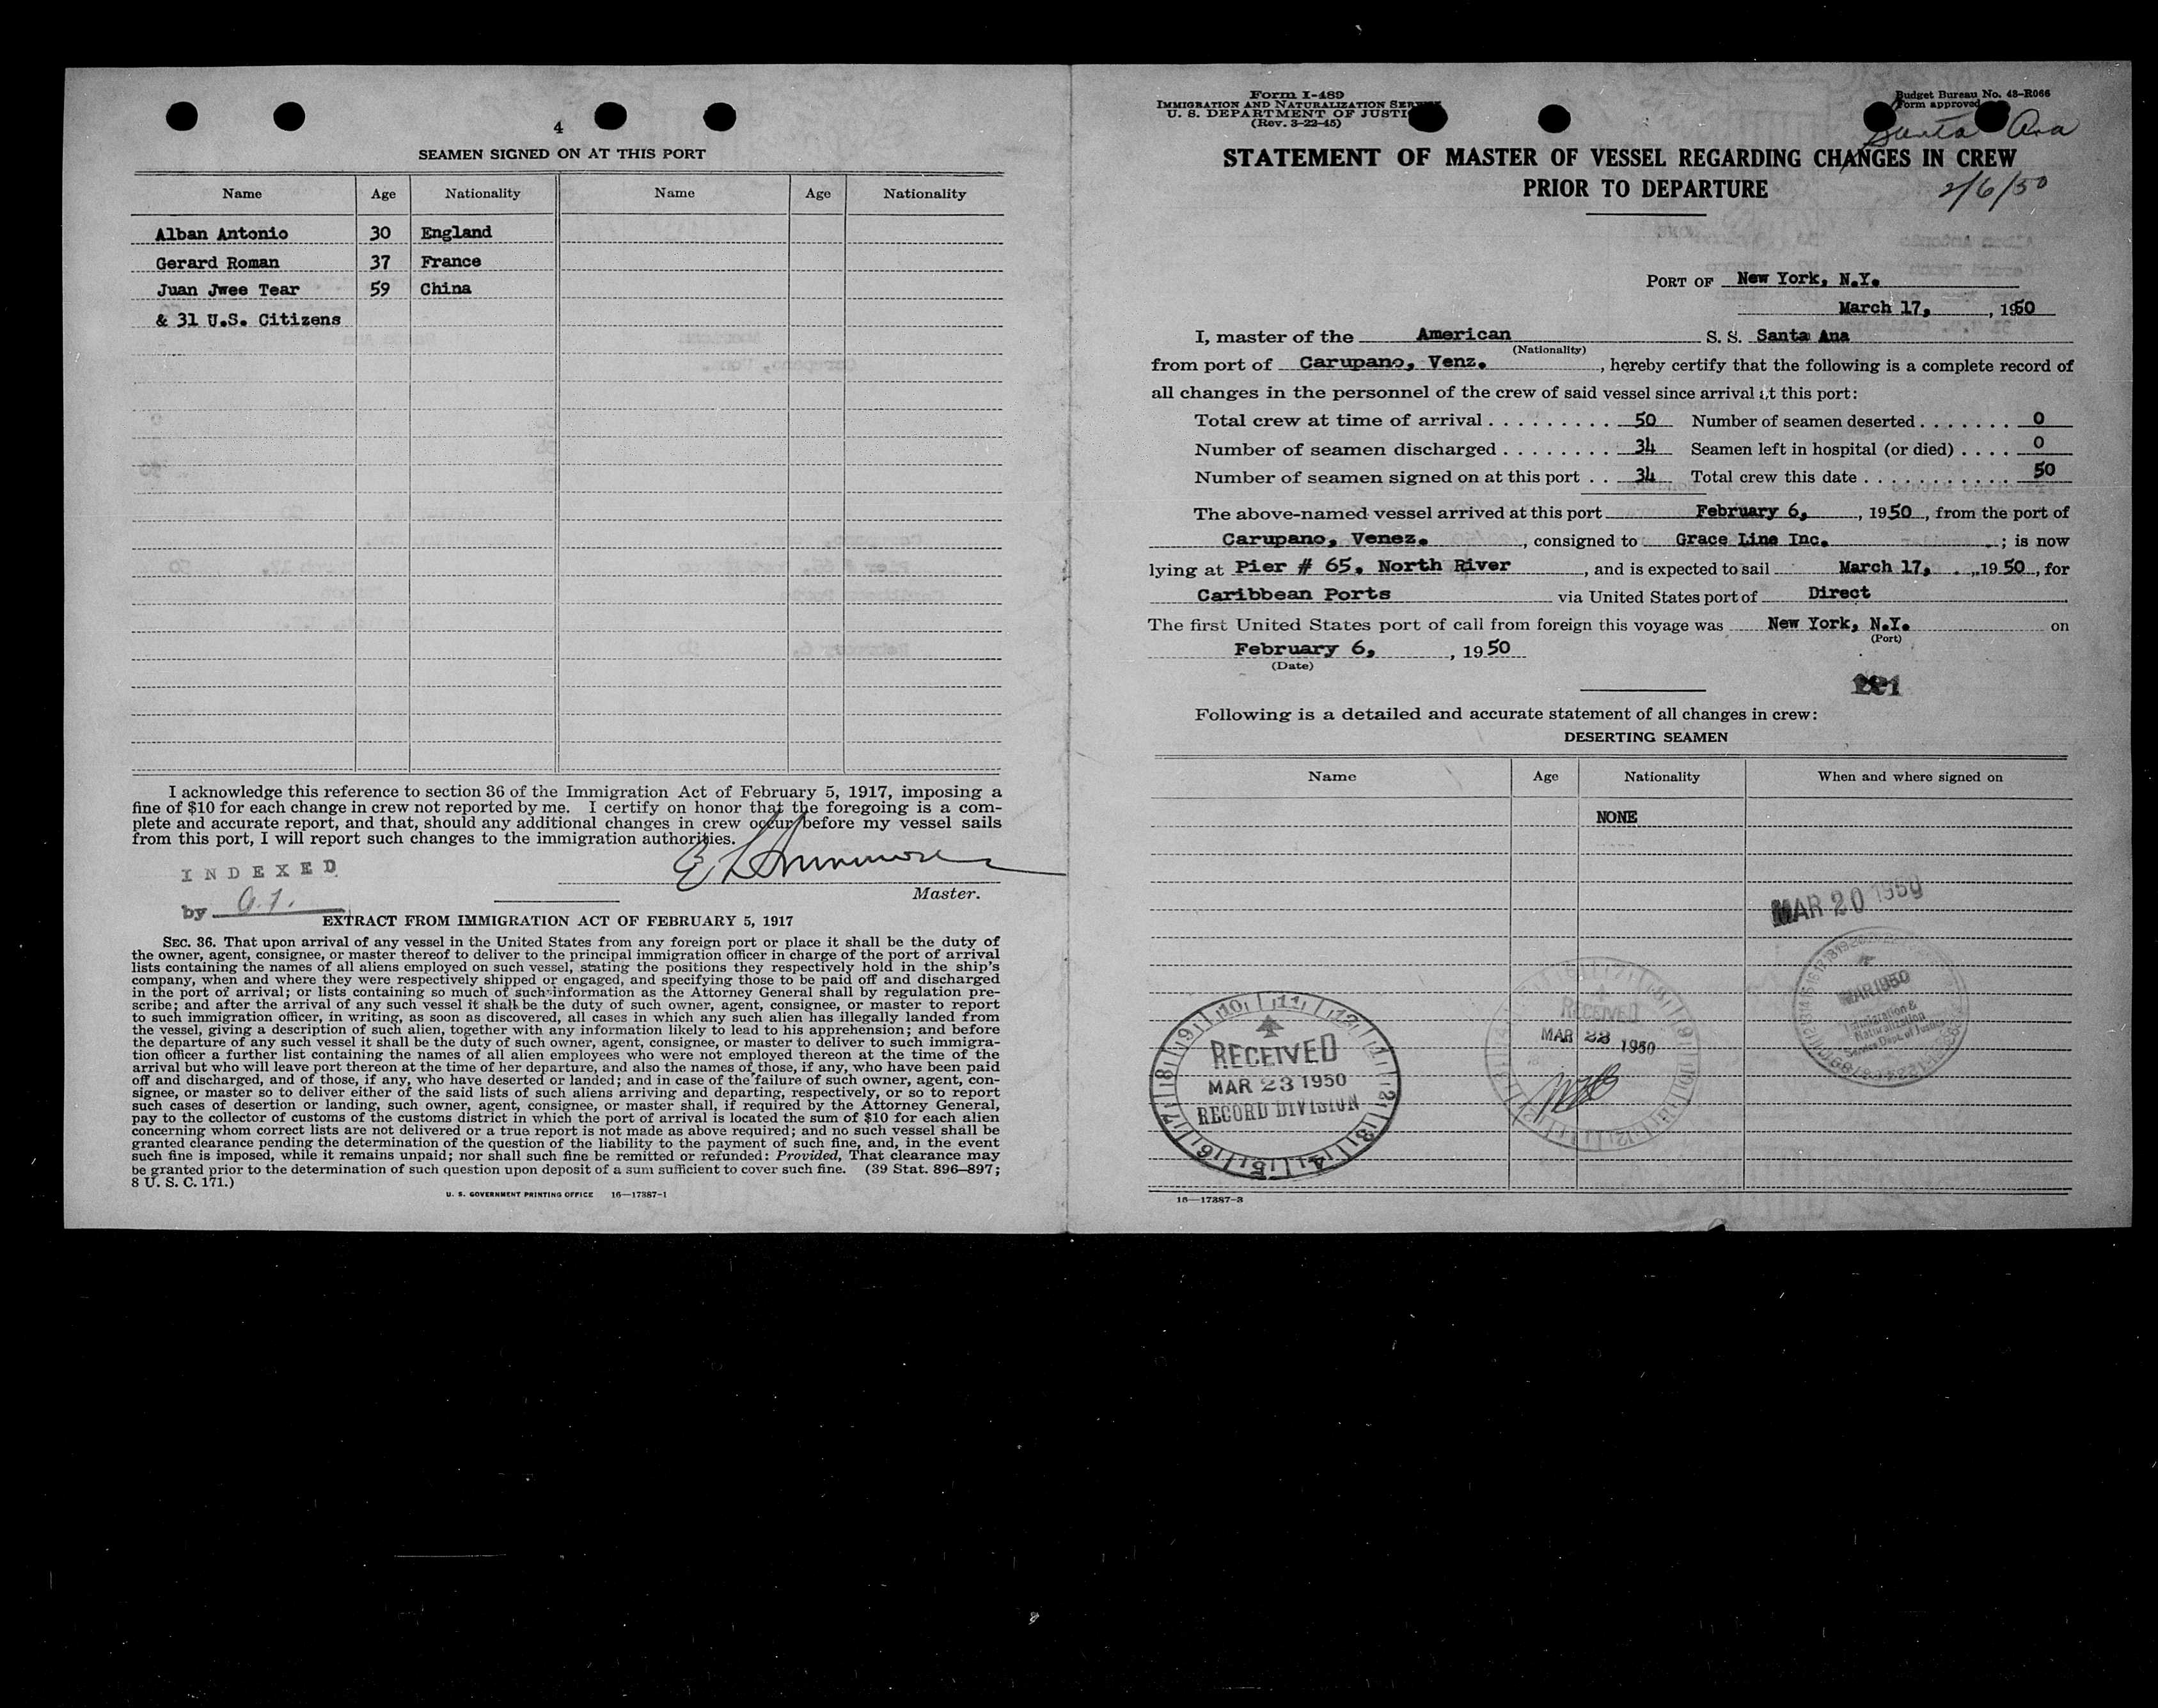 4
SEAMEN SIGNED ON AT THIS PORT
Name Age Nationality Name Age Nationality
Alban Antonio 30 England
Gerard Roman 37 France
Juan Jwee Tear 59 China
& 31 U.S. Citizens
I acknowledge this reference to section 36 of the Immigration Act of February 5, 1917, imposing a
fine of $10 for each change in crew not reported by me. I certify on honor that the foregoing is a com-
plete and accurate report, and that, should any additional changes in crew occur before my vessel sails
from this port, I will report such changes to the immigration authorities.
INDEXED
by
Master.
EXTRACT FROM IMMIGRATION ACT OF FEBRUARY 5, 1917
SEC. 36. That upon arrival of any vessel in the United States from any foreign port or place it shall be the duty of
the owner, agent, consignee, or master thereof to deliver to the principal immigration officer in charge of the port of arrival
lists containing the names of all aliens employed on such vessel, stating the positions they respectively hold in the ship's
company, when and where they were respectively shipped or engaged, and specifying those to be paid off and discharged
in the port of arrival; or lists containing so much of such information as the Attorney General shall by regulation pre-
scribe; and after the arrival of any such vessel it shall be the duty of such owner, agent, consignee, or master to report
to such immigration officer, in writing, as soon as discovered, all cases in which any such alien has illegally landed from
the vessel, giving a description of such alien, together with any information likely to lead to his apprehension; and before
the departure of any such vessel it shall be the duty of such owner, agent, consignee, or master to deliver to such immigra-
tion officer a further list containing the names of all alien employees who were not employed thereon at the time of the
arrival but who will leave port thereon at the time of her departure, and also the names of those, if any, who have been paid
off and discharged, and of those, if any, who have deserted or landed; and in case of the failure of such owner, agent, con-
signee, or master so to deliver either of the said lists of such aliens arriving and departing, respectively, or so to report
such cases of desertion or landing, such owner, agent, consignee, or master shall, if required by the Attorney General,
pay to the collector of customs of the customs district in which the port of arrival is located the sum of $10 for each alien
concerning whom correct lists are not delivered or a true report is not made as above required; and no such vessel shall be
granted clearance pending the determination of the question of the liability to the payment of such fine, and, in the event
such fine is imposed, while it remains unpaid; nor shall such fine be remitted or refunded: Provided, That clearance may
be granted prior to the determination of such question upon deposit of a sum sufficient to cover such fine. (39 Stat. 896–897;
8 U. S. C. 171.)
U. S. GOVERNMENT PRINTING OFFICE 16—17387-1
Form I-489
IMMIGRATION AND NATURALIZATION
U. S. DEPARTMENT OF
(Rev. 3-22-45)
Budget Bureau No. 43-R066
Form approved
Santa Ana
STATEMENT OF MASTER OF VESSEL REGARDING CHANGES IN CREW
PRIOR TO DEPARTURE
2/6/50
PORT OF New York, N.Y.
March 17, , 1950
I, master of the American S. S. Santa Ana
(Nationality)
from port of Carupano, Venz. , hereby certify that the following is a complete record of
all changes in the personnel of the crew of said vessel since arrival at this port:
Total crew at time of arrival . . . . . . . . . 50 Number of seamen deserted . . . . . . . 0
Number of seamen discharged . . . . . . . . 34 Seamen left in hospital (or died) . . . . 0
Number of seamen signed on at this port . . 34 Total crew this date . . . . . . . . . . . 50
The above-named vessel arrived at this port February 6, , 1950 , from the port of
Carupano, Venez. , consigned to Grace Line Inc. ; is now
lying at Pier # 65. North River , and is expected to sail March 17, , 1950 , for
Caribbean Ports via United States port of Direct
The first United States port of call from foreign this voyage was New York, N.Y. on
(Port)
February 6, , 1950
(Date)
Following is a detailed and accurate statement of all changes in crew:
DESERTING SEAMEN
Name Age Nationality When and where signed on
NONE
MAR 20 1950
MAR 1950
Immigration &
Naturalization
Service Dept. of Justice
RECEIVED
MAR 1950
RECEIVED
MAR 23 1950
RECORD DIVISION
16—17387-3